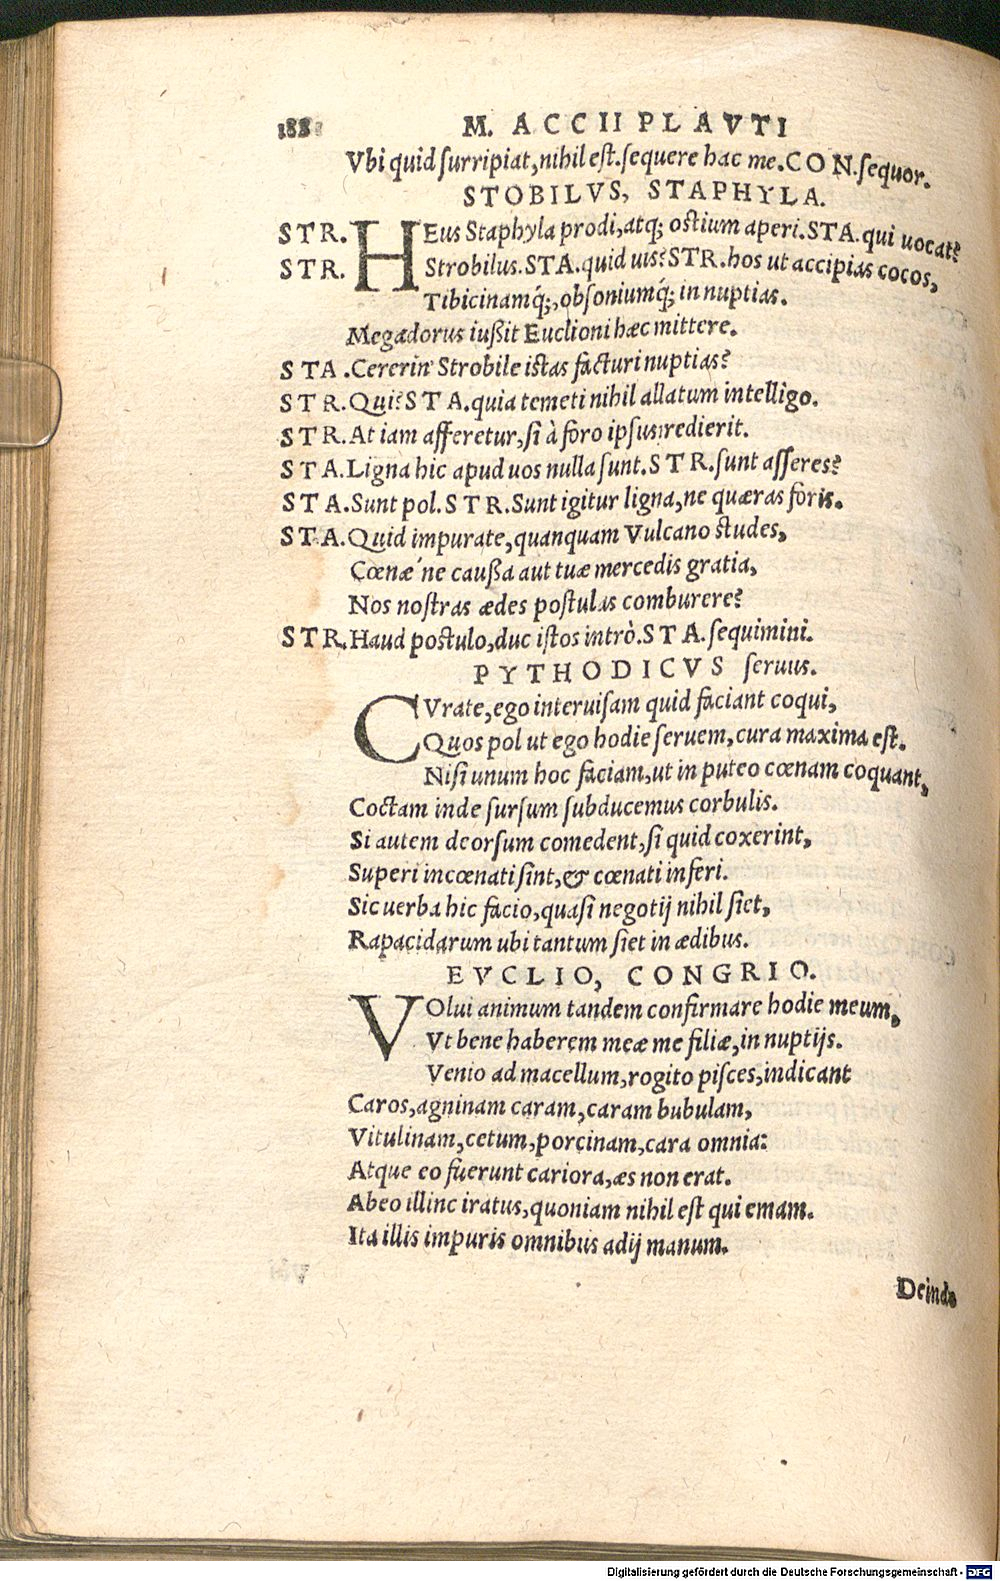 188 M. ACCII PLAVTI
Vbi quid surripiat, nihil est. sequere hac me. CON. sequor.
STOBILVS, STAPHYLA.
STR. HEus Staphyla prodi, atq; ostium aperi. STA. qui uocat?
STR. Strobilus. STA. quid uis? STR. hos ut accipias cocos,
Tibicinamq́;, obsoniumq́; in nuptias.
Megadorus iußit Euclioni hæc mittere.
STA. Cererin' Strobile istas facturi nuptias?
STR. Qui? STA. quia temeti nihil allatum intelligo.
STR. At iam afferetur, si à foro ipsus redierit.
STA. Ligna hic apud uos nulla sunt. STR. sunt asseres?
STA. Sunt pol. STR. Sunt igitur ligna, ne quæras foris.
STA. Quid impurate, quanquam Vulcano studes,
Cœnæ´ne caußa aut tuæ mercedis gratia,
Nos nostras ædes postulas comburere?
STR. Haud postulo, duc istos intrò. STA. sequimini.
PYTHODICVS seruus.
CVrate, ego interuisam quid faciant coqui,
Quos pol ut ego hodie seruem, cura maxima est.
Nisi unum hoc faciam, ut in puteo cœnam coquant,
Coctam inde sursum subducemus corbulis.
Si autem deorsum comedent, si quid coxerint,
Superi incœnati sint, & cœnati inferi.
Sic uerba hic facio, quasi negotij nihil siet,
Rapacidarum ubi tantum siet in ædibus.
EVCLIO, CONGRIO.
VOlui animum tandem confirmare hodie meum,
Vt bene haberem meæ me filiæ, in nuptijs.
Venio ad macellum, rogito pisces, indicant
Caros, agninam caram, caram bubulam,
Vitulinam, cetum, porcinam, cara omnia:
Atque eo fuerunt cariora, æs non erat.
Abeo illinc iratus, quoniam nihil est qui emam.
Ita illis impuris omnibus adij manum.
Deinde
Digitalisierung gefördert durch die Deutsche Forschungsgemeinschaft - DFG